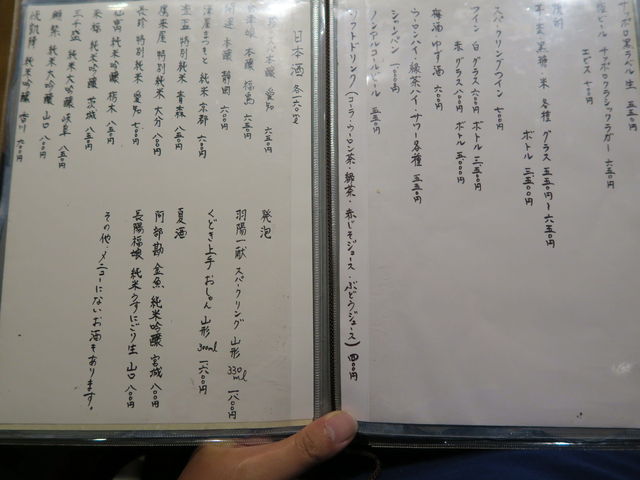 サッポロ黒ラベル 生 五五〇円
瓶ビール サッポロクラシックラガー 六五〇円
エビス 七〇〇円
芋 麦 黒糖 米 各種 グラス 五五〇円〜六五〇円
ボトル 三五〇〇円
スパークリングワイン 七〇〇円
ワイン 白 グラス 六〇〇円 ボトル 三五〇〇円
赤 グラス 八〇〇円 ボトル 五〇〇〇円
梅酒 ゆず酒 六〇〇円
ウーロンハイ・緑茶ハイ・サワー各種 五五〇円
シャンパン
ノンアルコールビール 五五〇円
ソフトドリンク(コーラ・ウーロン茶・緑茶・赤じそジュース・ぶどうジュース) 四〇〇円
日本酒
本醸 愛知 六五〇円
本醸 福島 六五〇円
開運 本醸 静岡 六〇〇円
澤屋まつもと 純米 京都 六五〇円
特別純米 青森 八五〇円
鷹来屋 特別純米 大分 八〇〇円
長珍 特別純米 愛知 七〇〇円
純米吟醸 栃木 八五〇円
純米吟醸 茨城 八五〇円
三千盛 純米大吟醸 岐阜 八五〇円
獺祭 純米大吟醸 山口 八〇〇円
悦凱陣 純米吟醸 香川 九〇〇円
発泡
羽陽一献 スパークリング 山形 330ml 一八〇〇円
くどき上手 おしゅん 山形 300ml 一六〇〇円
夏酒
阿部勘 金魚 純米吟醸 宮城 八〇〇円
長陽福娘 純米うすにごり生 山口 八〇〇円
その他・メニューにないお酒もあります。